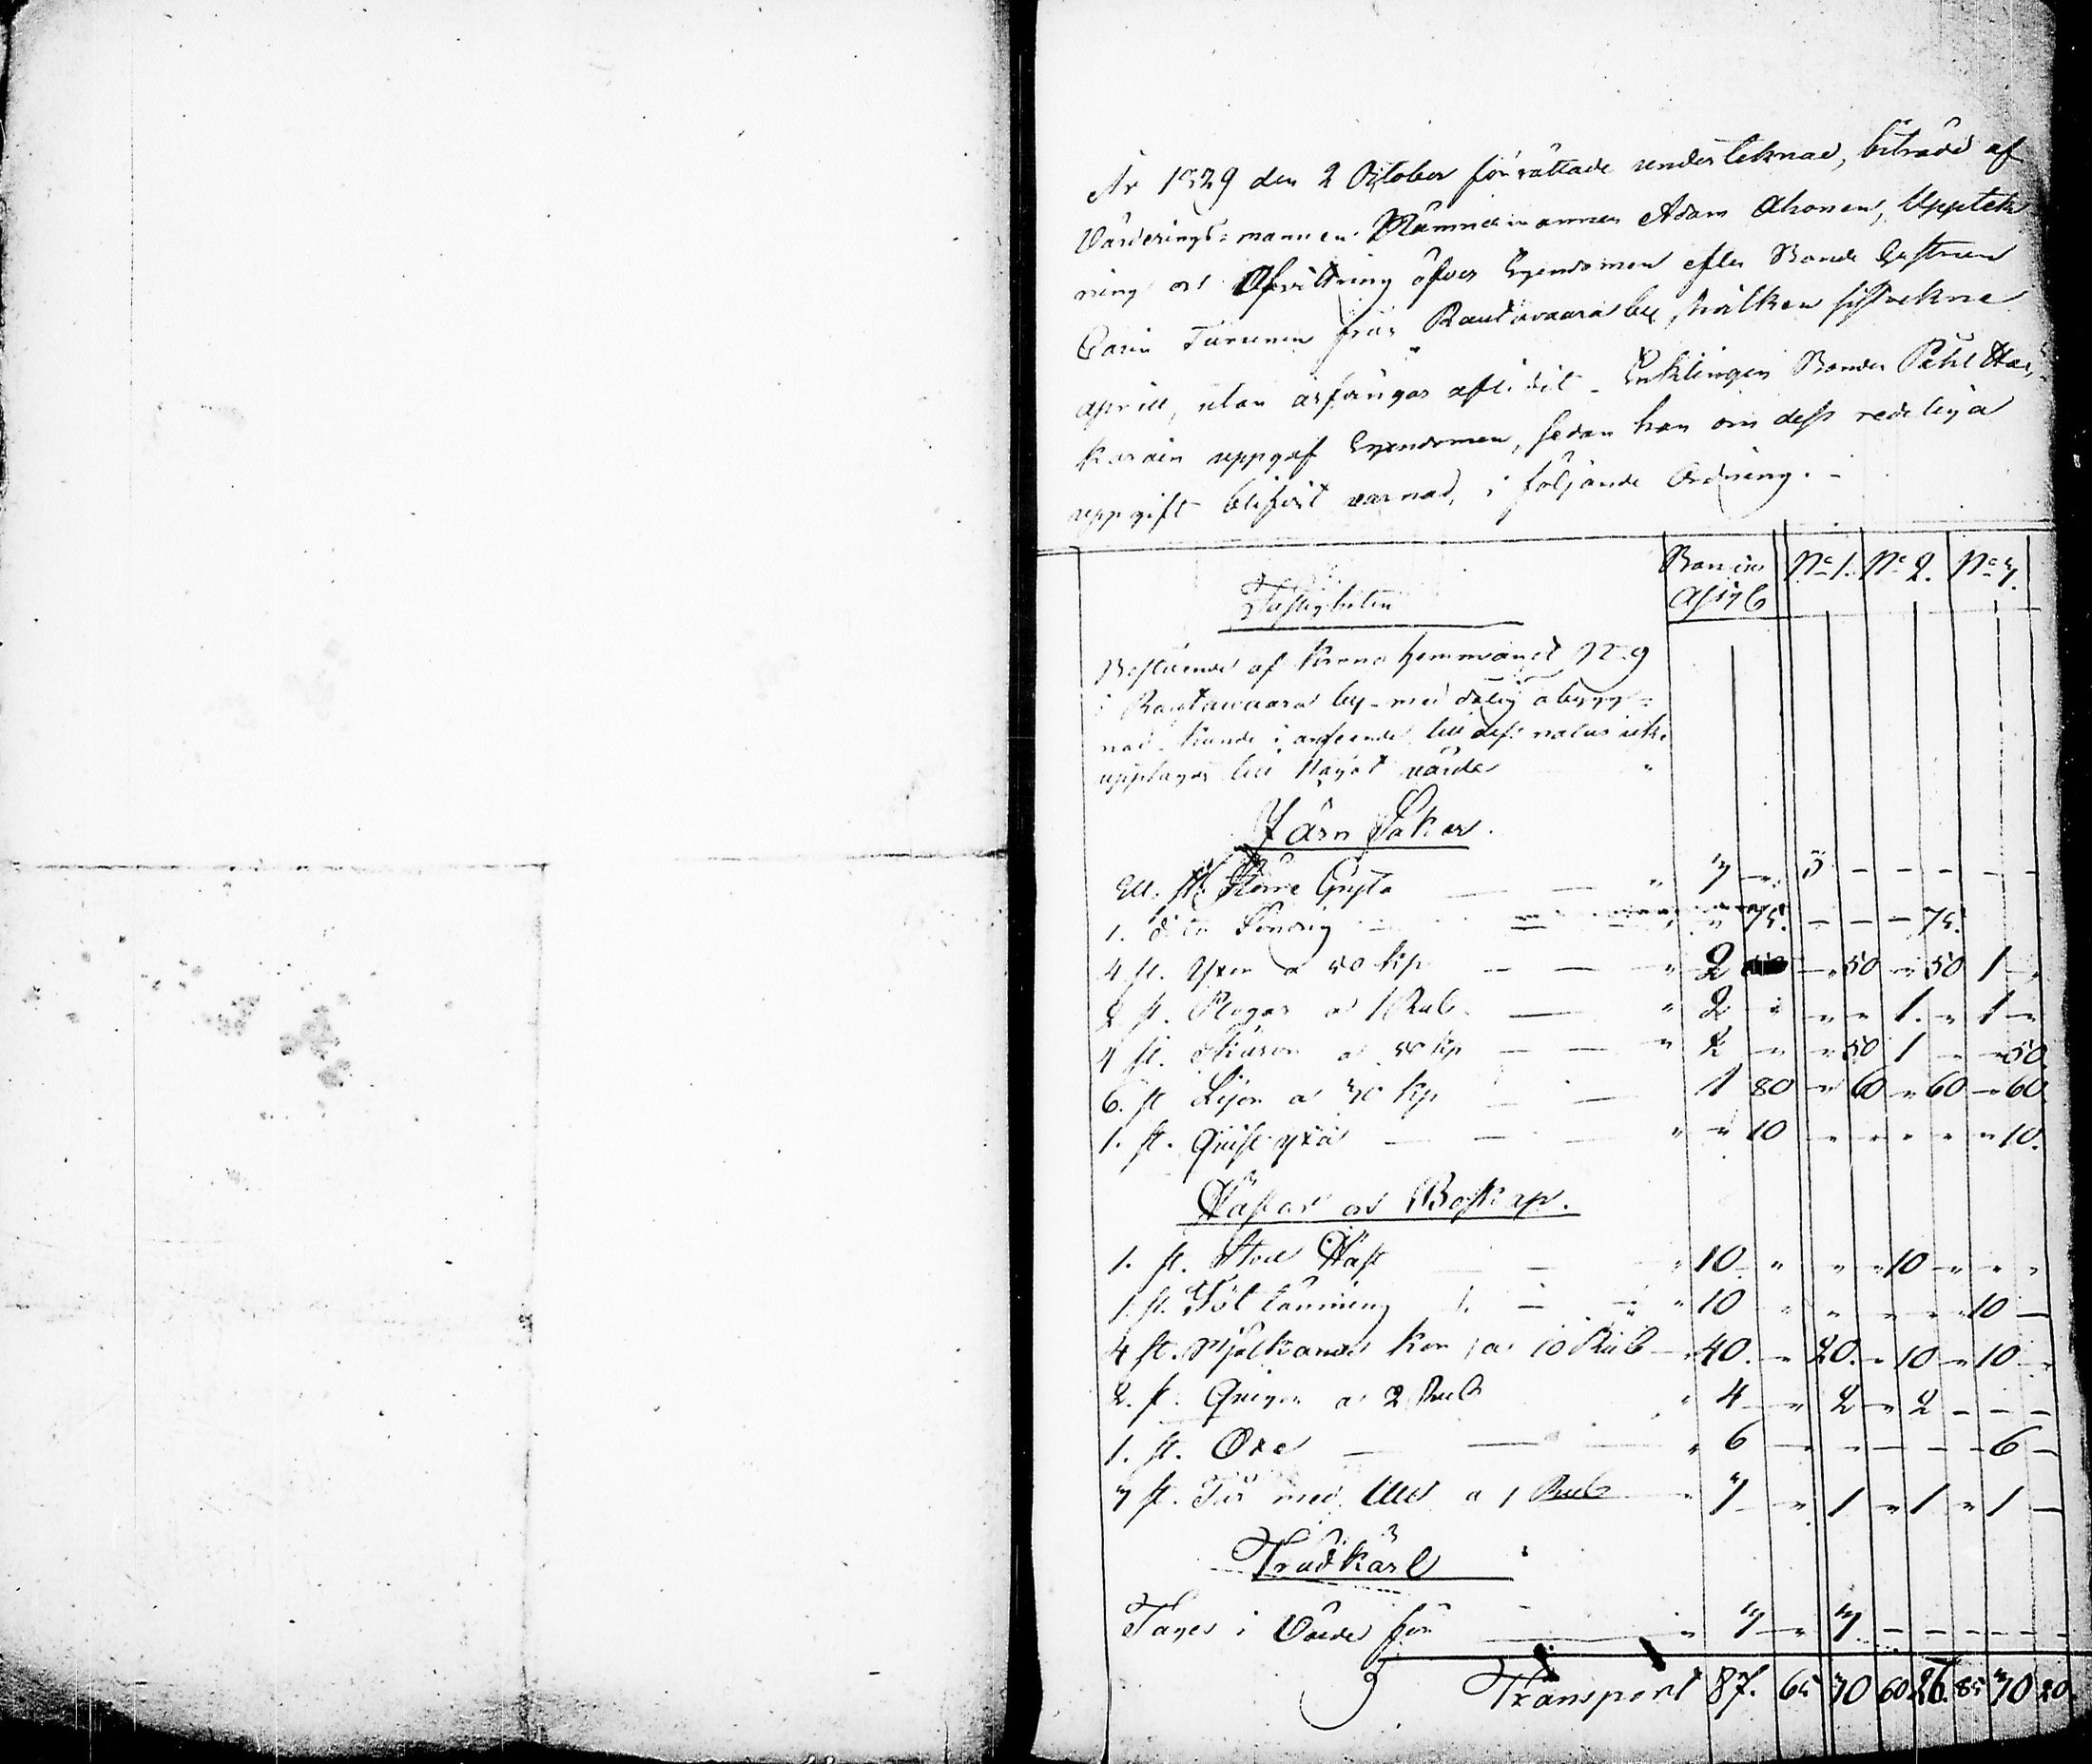 År 1829 den 2 October förrättade underteknad, biträdd af
Värderings-mannen Nämndemannen Adam Ahonen, Upptek
ning och Afvittring öfver Egendomen efter Bonde Hustrun
Carin Turunen från Rautavaara by, hvilken sistvekne
april, utan arfvingar aflidit - Enklingen Bonden Påhl Har,
karain uppgaf Egendomen, sedan han om dess redeliga
uppgift blifvit varnad, i följande Ordning. -
Banco Assig No 1. No 2. No 3.
Fastigheten
Bestående af Krono hemmanet No 9
i Rautawaara by - med dålig åbygg=
nad - kunde i anseende till dess natur icke
upptagas till något värde "
Järn Saker.
st. Större Gryta — — " 3 — " 3 — — — — —
1. dito Söndrig — — " " 75. — — — 75.
4 st. Yxor a 50 Kp — — " 2 — " 50 " 50 1 "
2 st. Plogar a 1 Rub. — " 2 " " " 1. " 1 "
4 st. Skäror a 50 Kp — — " 2 " " 50 1 — " 50
6. st Lijor a 30 Kp — — 1 80 " 60 " 60 " 60
1. st. yxa — — — " " 10 " " " " " 10.
Hästar och Boskap.
1. st. Sto Häst — — " 10 " " " 10 " " "
1. st. Föl — " 10 " " " " " 10 —
4 st. Mjölkande Kor a 10 Rub — 40. " 20. " 10 " 10 "
2. st. Qvigor a 2 Rub " 4 " 2 " 2 — — —
1. st. Oxe — — — " 6 " " — — — 6 —
3 st. Får med Ull a 1 Rub " 3 " 1 " 1 " 1 —
Trädkärl
Tages i Värde för — " 3 " 3 — — — — —
Transport 87. 65 30 60 26. 85 30 20